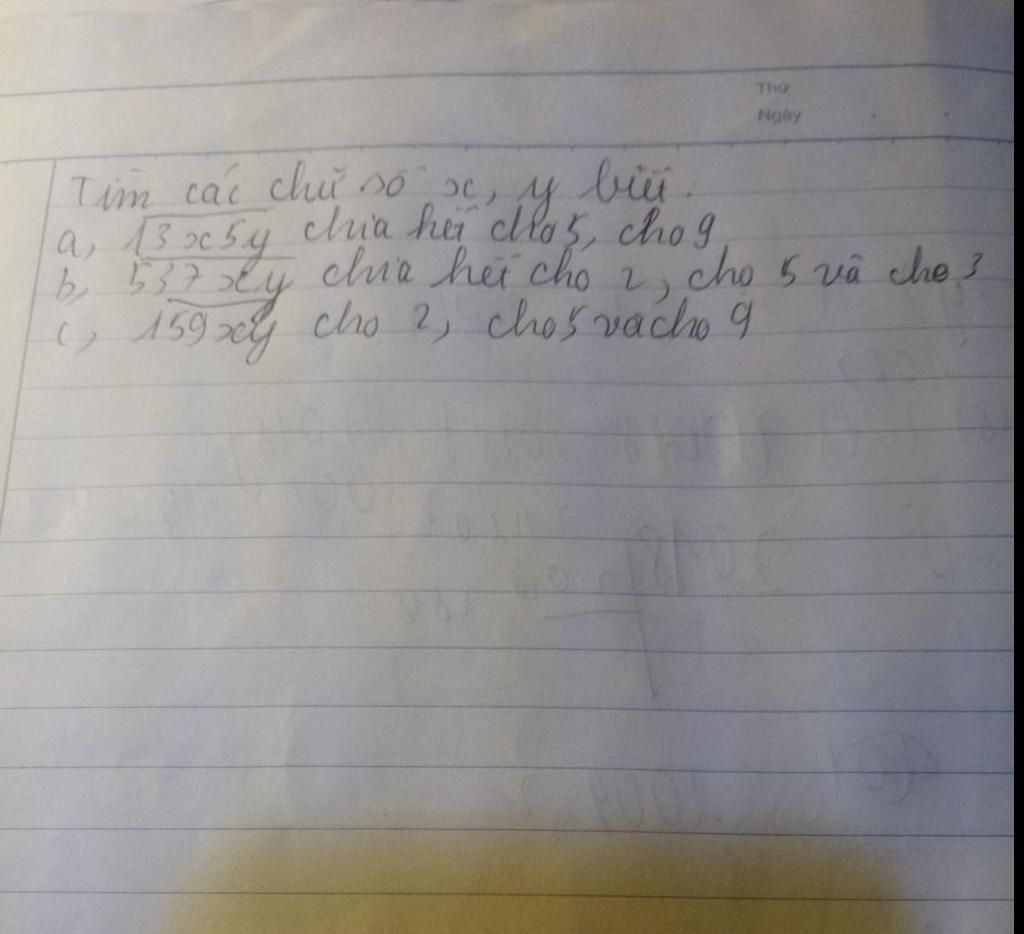 Thứ
Ngày
Tìm các chữ số x, y biết:
a, 13x5y chia hết cho 5, cho 9
b, 537xy chia hết cho 2, cho 5 và cho 3
c, 159xy cho 2, cho 5 và cho 9